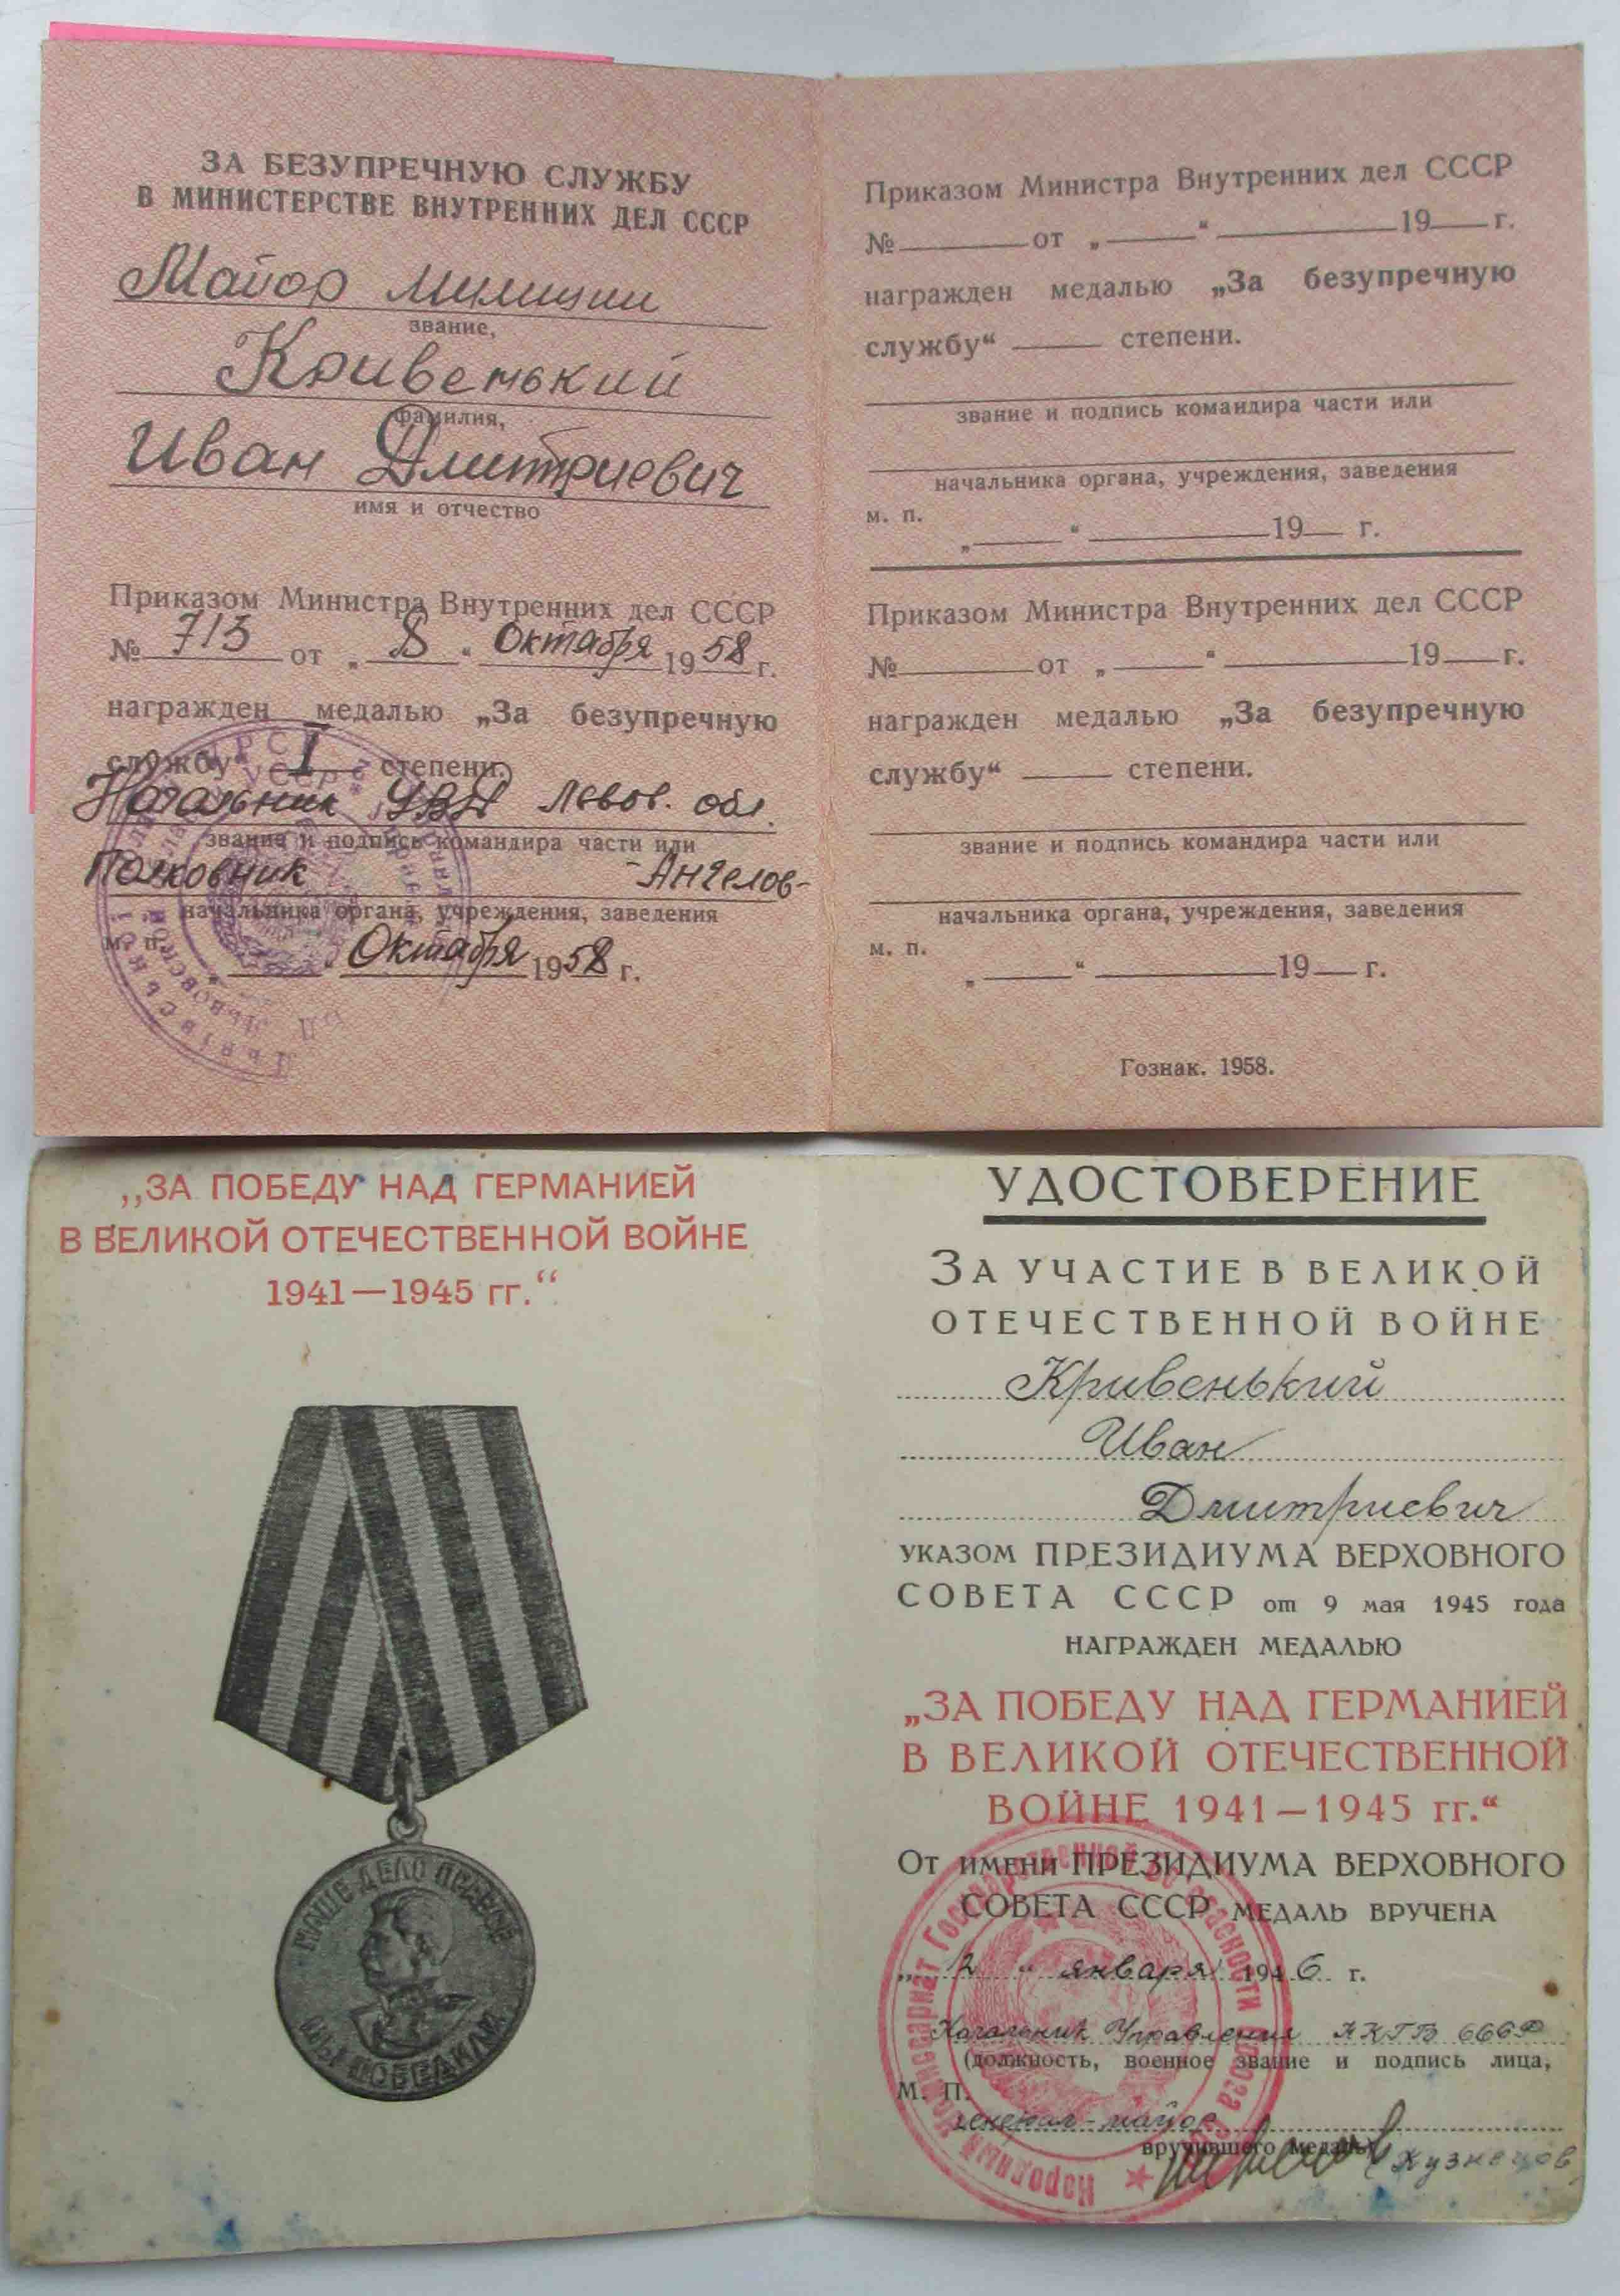 ЗА БЕЗУПРЕЧНУЮ СЛУЖБУ
В МИНИСТЕРСТВЕ ВНУТРЕННИХ ДЕЛ СССР
Майор милиции
звание,
Кривенький
фамилия,
Иван Дмитриевич
имя и отчество
Приказом Министра Внутренних дел СССР
№ 713 от „ 8 “ Октября 1958 г.
награжден медалью „За безупречную
службу“ I степени.
Начальник УВД Львов. обл.
звание и подпись командира части или
Полковник -Ангелов-
начальника органа, учреждения, заведения
м. п.
Октября 1958 г.
Приказом Министра Внутренних дел СССР
№ от „ “ 19 г.
награжден медалью „За безупречную
службу“ степени.
звание и подпись командира части или
начальника органа, учреждения, заведения
м. п.
„ “ 19 г.
Приказом Министра Внутренних дел СССР
№ от „ “ 19 г.
награжден медалью „За безупречную
службу“ степени.
звание и подпись командира части или
начальника органа, учреждения, заведения
м. п.
„ “ 19 г.
Гознак. 1958.
„ЗА ПОБЕДУ НАД ГЕРМАНИЕЙ
В ВЕЛИКОЙ ОТЕЧЕСТВЕННОЙ ВОЙНЕ
1941—1945 гг.“
НАШЕ ДЕЛО ПРАВОЕ
МЫ ПОБЕДИЛИ
УДОСТОВЕРЕНИЕ
ЗА УЧАСТИЕ В ВЕЛИКОЙ
ОТЕЧЕСТВЕННОЙ ВОЙНЕ
Кривенький
Иван
Дмитриевич
УКАЗОМ ПРЕЗИДИУМА ВЕРХОВНОГО
СОВЕТА СССР от 9 мая 1945 года
НАГРАЖДЕН МЕДАЛЬЮ
„ЗА ПОБЕДУ НАД ГЕРМАНИЕЙ
В ВЕЛИКОЙ ОТЕЧЕСТВЕННОЙ
ВОЙНЕ 1941—1945 гг.“
ОТ ИМЕНИ ПРЕЗИДИУМА ВЕРХОВНОГО
СОВЕТА СССР МЕДАЛЬ ВРУЧЕНА
„ 12 “ января 1946 г.
Начальник Управления НКГБ СССР
(должность, военное звание и подпись лица,
М. П.
генерал-майор
вручившего медаль)
(Кузнецов
Народный Комиссариат Государственной Безопасности Союза ССР